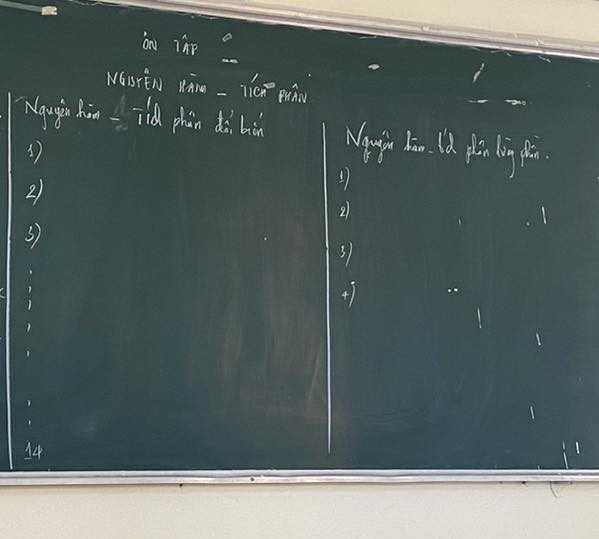 ÔN TẬP
NGUYÊN HÀM - TÍCH PHÂN
Nguyên hàm - Tích phân đổi biến
1)
2)
3)
14
Nguyên hàm - tích phân từng phần.
1)
2)
3)
4)